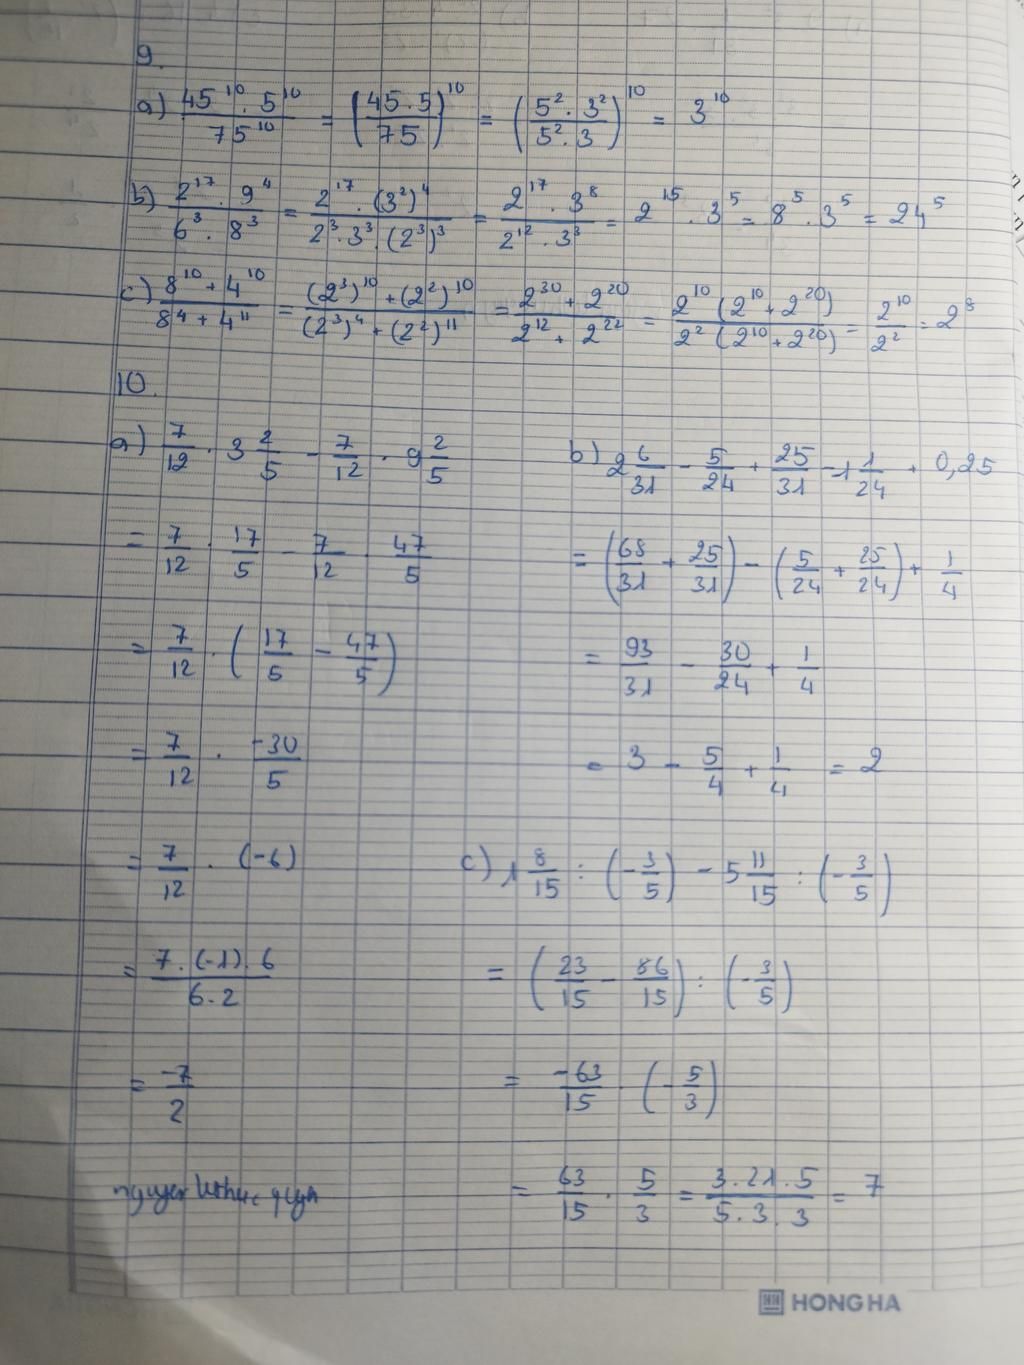 9.
a) 45^10 . 5^10 / 75^10 = (45 . 5 / 75)^10 = (5^2 . 3^2 / 5^2 . 3)^10 = 3^10
b) 2^17 . 9^4 / 6^3 . 8^3 = 2^17 . (3^2)^4 / 2^3 . 3^3 . (2^3)^3 = 2^17 . 3^8 / 2^12 . 3^3 = 2^15 . 3^5 = 8^5 . 3^5 = 24^5
c) 8^10 + 4^10 / 8^4 + 4^11 = (2^3)^10 + (2^2)^10 / (2^3)^4 + (2^2)^11 = 2^30 + 2^20 / 2^12 + 2^22 = 2^10 (2^10 + 2^20) / 2^2 (2^10 + 2^20) = 2^10 / 2^2 = 2^8
10.
a) 7/12 . 3 2/5 - 7/12 . 9 2/5
= 7/12 . 17/5 - 7/12 . 47/5
= 7/12 . (17/5 - 47/5)
= 7/12 . -30/5
= 7/12 . (-6)
= 7 . (-1) . 6 / 6 . 2
= -7/2
b) 2 6/31 - 5/24 + 25/31 - 1 1/24 + 0,25
= (68/31 + 25/31) - (5/24 + 25/24) + 1/4
= 93/31 - 30/24 + 1/4
= 3 - 5/4 + 1/4 = 2
c) 1 8/15 : (-3/5) - 5 11/15 : (-3/5)
= (23/15 - 86/15) : (-3/5)
= -63/15 . (-5/3)
= 63/15 . 5/3 = 3 . 21 . 5 / 5 . 3 . 3 = 7
HONG HA